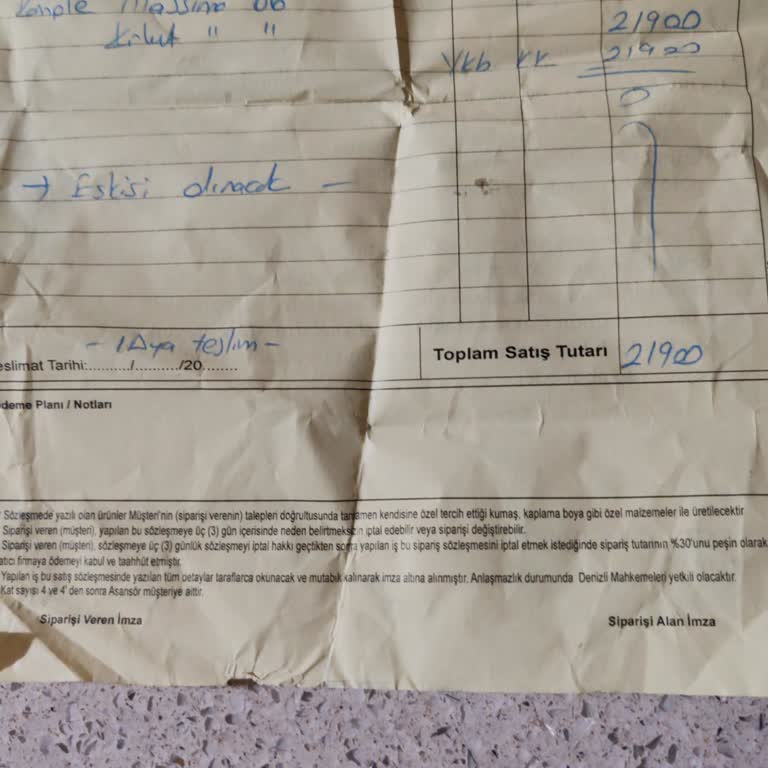 Komple Massima 06
21900
Kırlent " "
Vkb kr 21900
0
→ Eskisi alınacak -
- 1 Aya teslim -
eslimat Tarihi:........./........../20.......
Toplam Satış Tutarı 21900
deme Planı / Notları
Sözleşmede yazılı olan ürünler Müşteri'nin (siparişi verenin) talepleri doğrultusunda tamamen kendisine özel tercih ettiği kumaş, kaplama boya gibi özel malzemeler ile üretilecektir
Siparişi veren (müşteri), yapılan bu sözleşmeye üç (3) gün içerisinde neden belirtmeksizin iptal edebilir veya siparişi değiştirebilir.
Siparişi veren (müşteri), sözleşmeye üç (3) günlük sözleşmeyi iptal hakkı geçtikten sonra yapılan iş bu sipariş sözleşmesini iptal etmek istediğinde sipariş tutarının %30'unu peşin olarak
atıcı firmaya ödemeyi kabul ve taahhüt etmiştir.
Yapılan iş bu satış sözleşmesinde yazılan tüm detaylar taraflarca okunacak ve mutabık kalınarak imza altına alınmıştır. Anlaşmazlık durumunda Denizli Mahkemeleri yetkili olacaktır.
Kat sayısı 4 ve 4' den sonra Asansör müşteriye aittir.
Siparişi Veren İmza
Siparişi Alan İmza